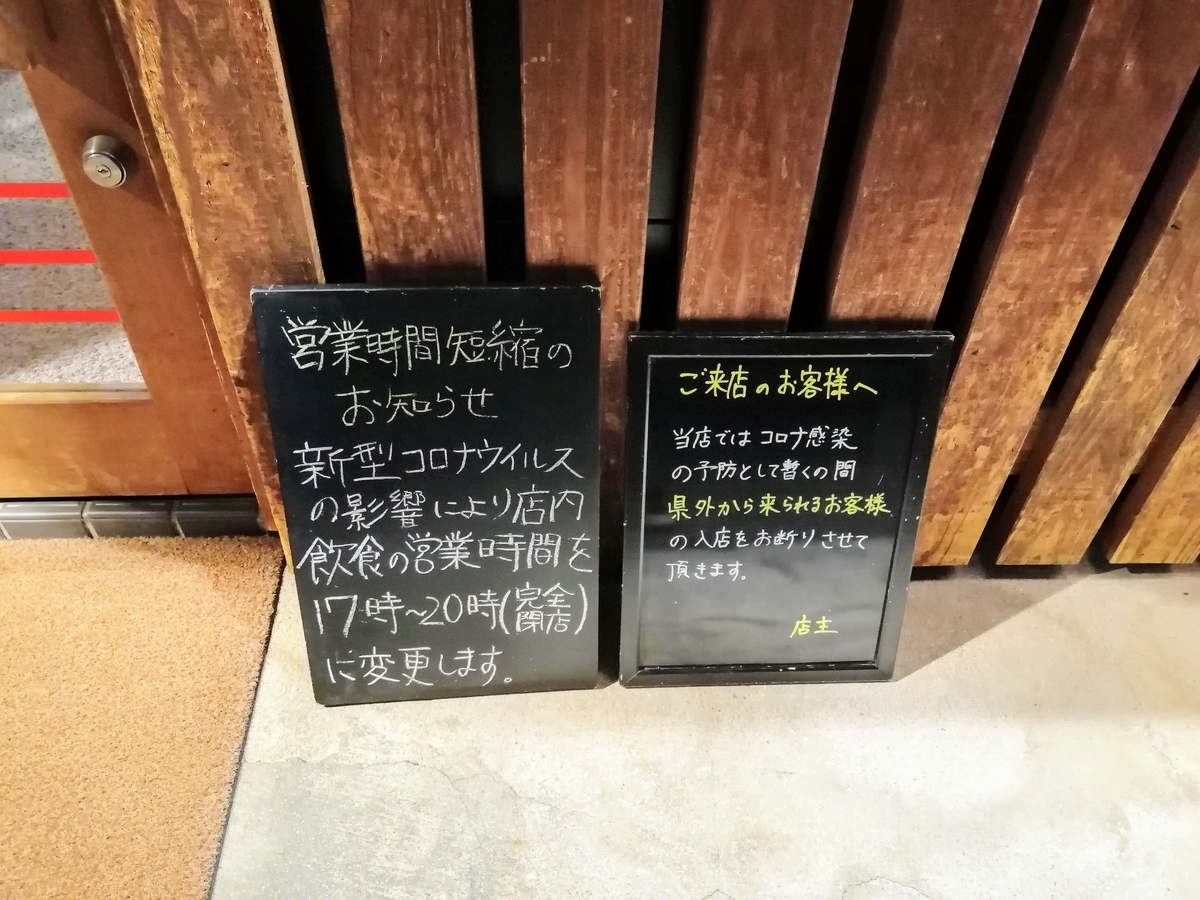 営業時間短縮の
お知らせ
新型コロナウイルス
の影響により店内
飲食の営業時間を
17時~20時(完全閉店)
に変更します。
ご来店のお客様へ
当店ではコロナ感染
の予防として暫くの間、
県外から来られるお客様
の入店をお断りさせて
頂きます。
店主